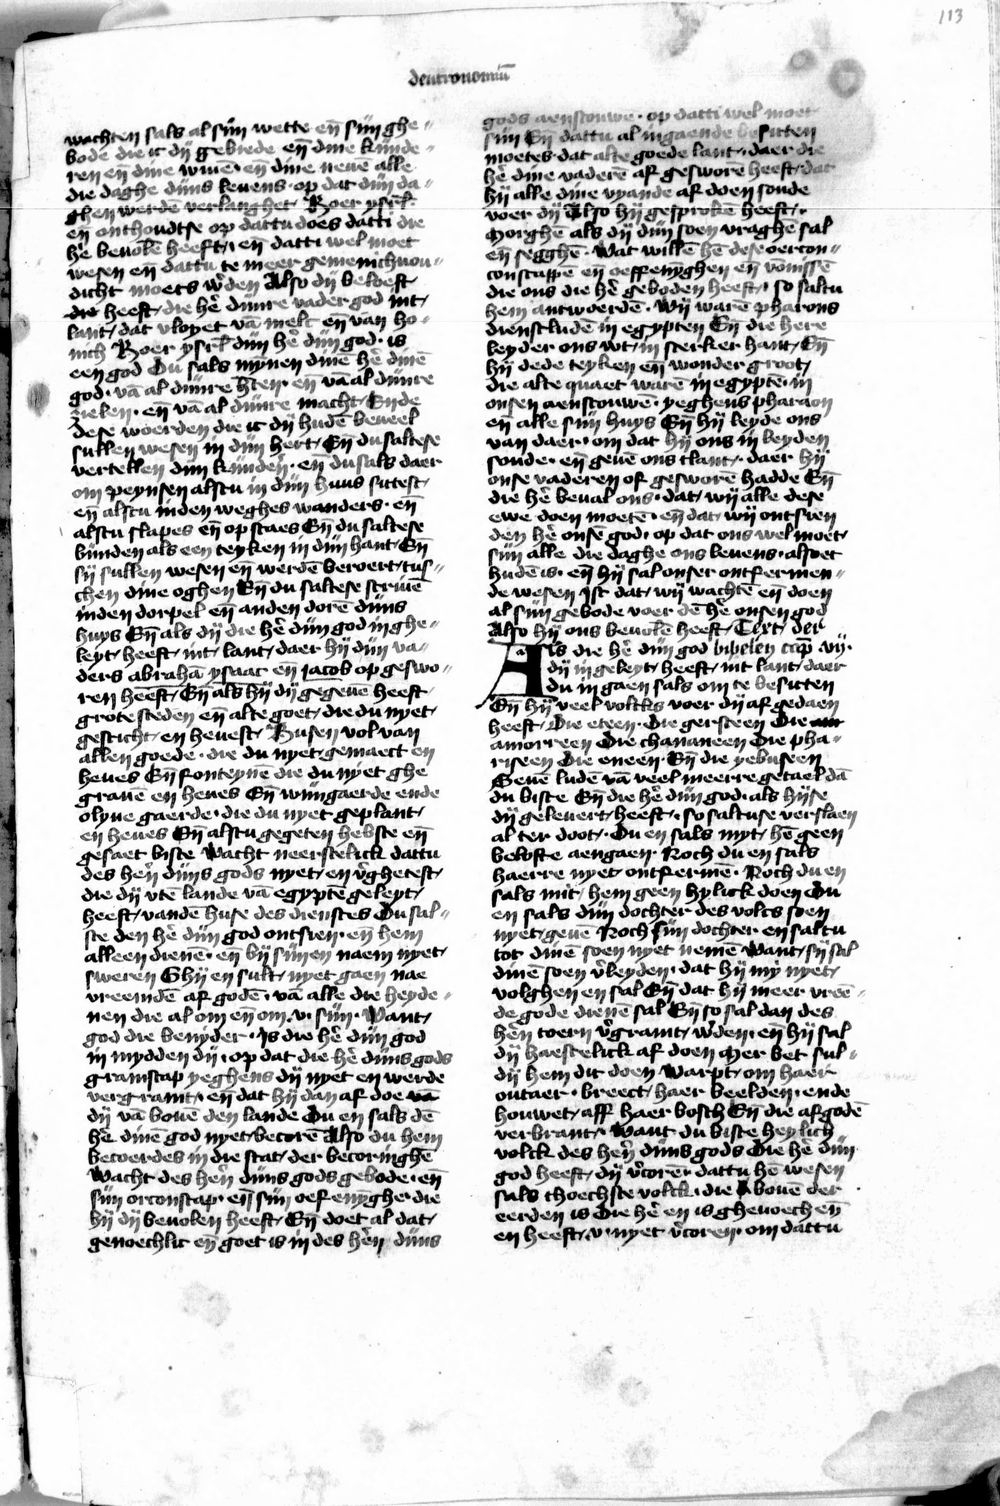 113
deutronomiū
wachten sals al sijn wette eñ sijn ghe〃
bode die ic dij gebiede eñ dine kinde〃
ren en dine wiue· eñ dine neuē alle
die daghe dijns leuens· op dat dijn da〃
ghen werdē verlanghet· Hoer ysrl̄
en onthoudtse op dattu does datti die
hē beuolē heeft/ eñ datti wel moet
wesen en dattu te meer gemenichuou〃
dicht moets w̄den Also dij beloeft
die heeft/ die hē dijnre vader god int/
lant/ dat vloyet vā melc eñ van ho〃
nich Hoer ysrl̄ dijn hē dijn god· is
een god Du sals mynen dinē hē dinē
god· vā al dijnre hten· eñ vā al dijnre
zielen· eñ vā al dijnre macht/ Ende
dese woerden die ic dij hudē beueel
sullen wesen in dijn hert/ Eñ du saltese
vertellen dijn kijnden· eñ du sals daer
om peynsen alstu in dijn huus sittest/
eñ alstu inden weghes wanders· eñ
alstu slapes eñ op staes Eñ du saltese
bijnden als een teyken in dijn hant/ Eñ
sij sullen wesen eñ werdē beroert/ tus〃
chen dine oghen Eñ du saltese scriuē
inden dorpel eñ anden dorē dijns
huys Eñ als dij die hē dijn god in ghe〃
leyt/ heeft/ int/ lant/ daer hij dijn va〃
ders abrahā ysaac eñ iacob op geswo〃
ren heeft/ Eñ als hij dij gegeuē heeft/
grote steden eñ alte goet/ die du nyet/
gesticht/ en heuest/ Husen vol van
allen goede· die du nyet gemaect en
heues Eñ fonteyne die du nyet ghe
grauē en heues Eñ wijngaerde ende
olyue gaerde· die du nyet geplant/
en heues Eñ alstu gegeten hebste eñ
gesaet biste Wacht neerstelick dattu
des hēn dijns gods nyet/ en v̄ghetest/
die dij vtē lande vā egyptē geleyt/
heeft/ vandē huse des dienstes Du sal〃
ste den hē dijn god ontsien· eñ hem
alleen dienē· eñ bij sijnen naem nyet/
sweren Ghij en sult/ nyet gaen nae
vreemdē af godē· vā alle die heyde〃
nen die al om eñ om· v· sijn· Want/
god die benyder· Is die hē dijn god
in mydden dij· op dat die hē dijns gods
gramscap yeghens dij nyet en werde
vergramt/ eñ dat hij dan af doe vā
dij vā bouē den lande Du en sals dē
hē dinē god nyet/ becorē Also du hem
becoerdes in die stat/ der becoringhē
Wacht des hēn dijns gods gebode· eñ
sijn orconscap· eñ sijn oefenyghe· die
hij dij beuolen heeft/ Eñ doet al dat/
genoechlic eñ goet is in des hēn dijns
gods aenscouwe· op datti wel moet
sijn Eñ dattu al ingaende besitten
moetes· dat alte goede lant/· daer die
hē dine vaderē af gesworē heeft/ dat
hij alle dine vyande af doen soude
voer dij Also hij gesprokē heeft/·
Morghē als dij dijn soen vraghē sal
eñ segghē· Wat willē hē dese oercon〃
conscappē eñ oeffenyghen eñ vōnissē
die ons die hē geboden heeft/· so saltu
hem antwoerdē· Wij warē pharons
dienstludē in egypten Eñ die here
leyder ons wt/ in sterker hant/ Eñ
hij dede teyken eñ wonder groot/
die alte quaet warē in egypte· in
onsen aenscouwē· yeghens pharaon
eñ alle sijn huys Eñ hij leyde ons
van daer· om dat hij ons in leyden
soude· eñ geuē ons tlant/· daer hij
onse vaderen of gesworē hadde Eñ
die hē beual ons· dat/ wij alle dese
ewe doen moetē· eñ dat/ wij ontsien
den hē onsē god· op dat ons wel moet/
sijn alle die daghe ons leuens· alsoet
hudē is· eñ hij sal onser ontfermen〃
de wesen Ist dat/ wij wachtē eñ doen
al sijn gebode voer dē hē onsen god
Also hij ons beuolē heeft/ Text/ der
Als die hē dijn god bibelen cap̄ vij·
dij in geleyt/ heeft/ int lant/ daer
du in gaen sals om te besitten
Eñ hij veel volcks voer dij af gedaen
heeft/ Die eteen· Die gersteen Die
amorreen Die chananeen Die pha〃
riseen Die eueen· Eñ die yebuseen
Seuē ludē vā veel meerre getael dā
du biste Eñ die hē dijn god· als hijse
dij geleuert/ heeft/· so saltuse verslaen
al ter doot/· Du en sals myt/ hē geen
belofte aengaen· Noch du en sals
haerre nyet/ ontfermē· Noch du en
sals mit/ hem geen hylick doen Du
en sals dijn dochter des volcs soen
nyet/ geuē Noch sijn dochter en saltu
tot dinē soen nyet nemē Want/ sij sal
dinē soen v̄leyden· dat hij mij nyet/
volghen en sal Eñ dat hij meer vree〃
de gode dienē sal Eñ so sal dan des
hēn toern v̄gramt/ w̄den· eñ hij sal
dij haestelick af doen Mer bet sul〃
dij hem dit doen/ Warpt/ om haer
outaer· breect/ haer beelden· ende
houwet/ aff haer bosch Eñ die afgodē
verbrant/ Want du biste heylich
volck des hēn dijns gods Die hē dijn
god heeft/ dij v̄coren dattu hē wesen
sals thoechste volck· die bouē der
eerden is Die hē en is gheuoech eñ
en heeft/ v· nyet v̄coren· om dattu